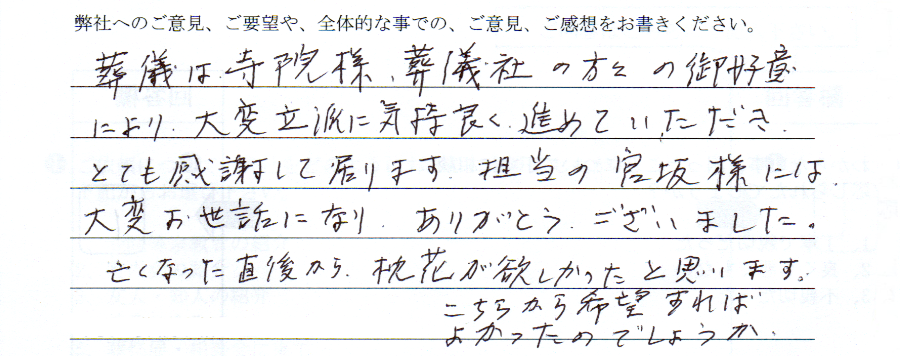 弊社へのご意見、ご要望や、全体的な事での、ご意見、ご感想をお書きください。
葬儀は寺院様、葬儀社の方々の御好意
により、大変立派に気持良く、進めていただき、
とても感謝して居ります。担当の宮坂様には、
大変お世話になり、ありがとう、ございました。
亡くなった直後から、枕花が欲しかったと思います。
こちらから希望すれば
よかったのでしょうか、